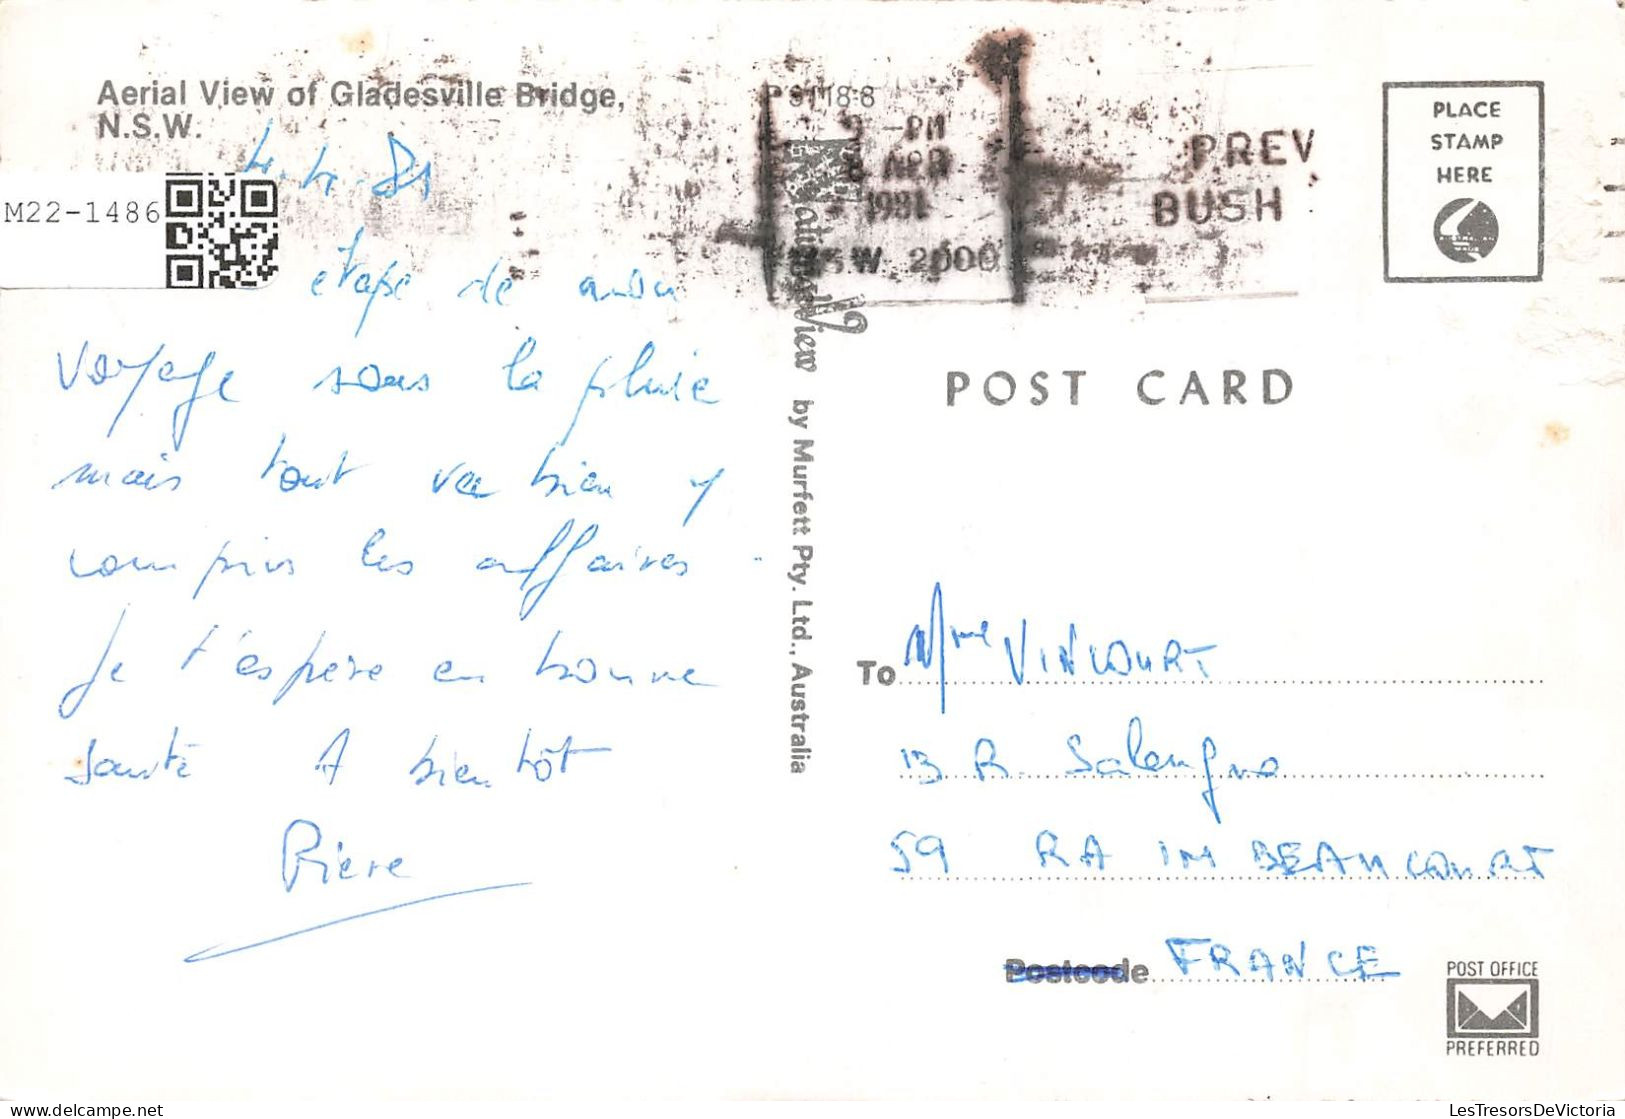 Aerial View of Gladesville Bridge,
N.S.W.
4.4.81
M22-1486
étape de mon
voyage sous la pluie
mais tout va bien y
compris les affaires.
Je t'espère en bonne
santé A bientôt
Pierre
P 9118-8
-PM
8 APR
1981
NSW 2000
PREV
BUSH
PLACE
STAMP
HERE
View by Murfett Pty. Ltd., Australia
POST CARD
To Mme VINCOURT
13 R. Salengro
59 RAIMBEAUCOURT
Postcode FRANCE
POST OFFICE
PREFERRED
LesTresorsDeVictoria